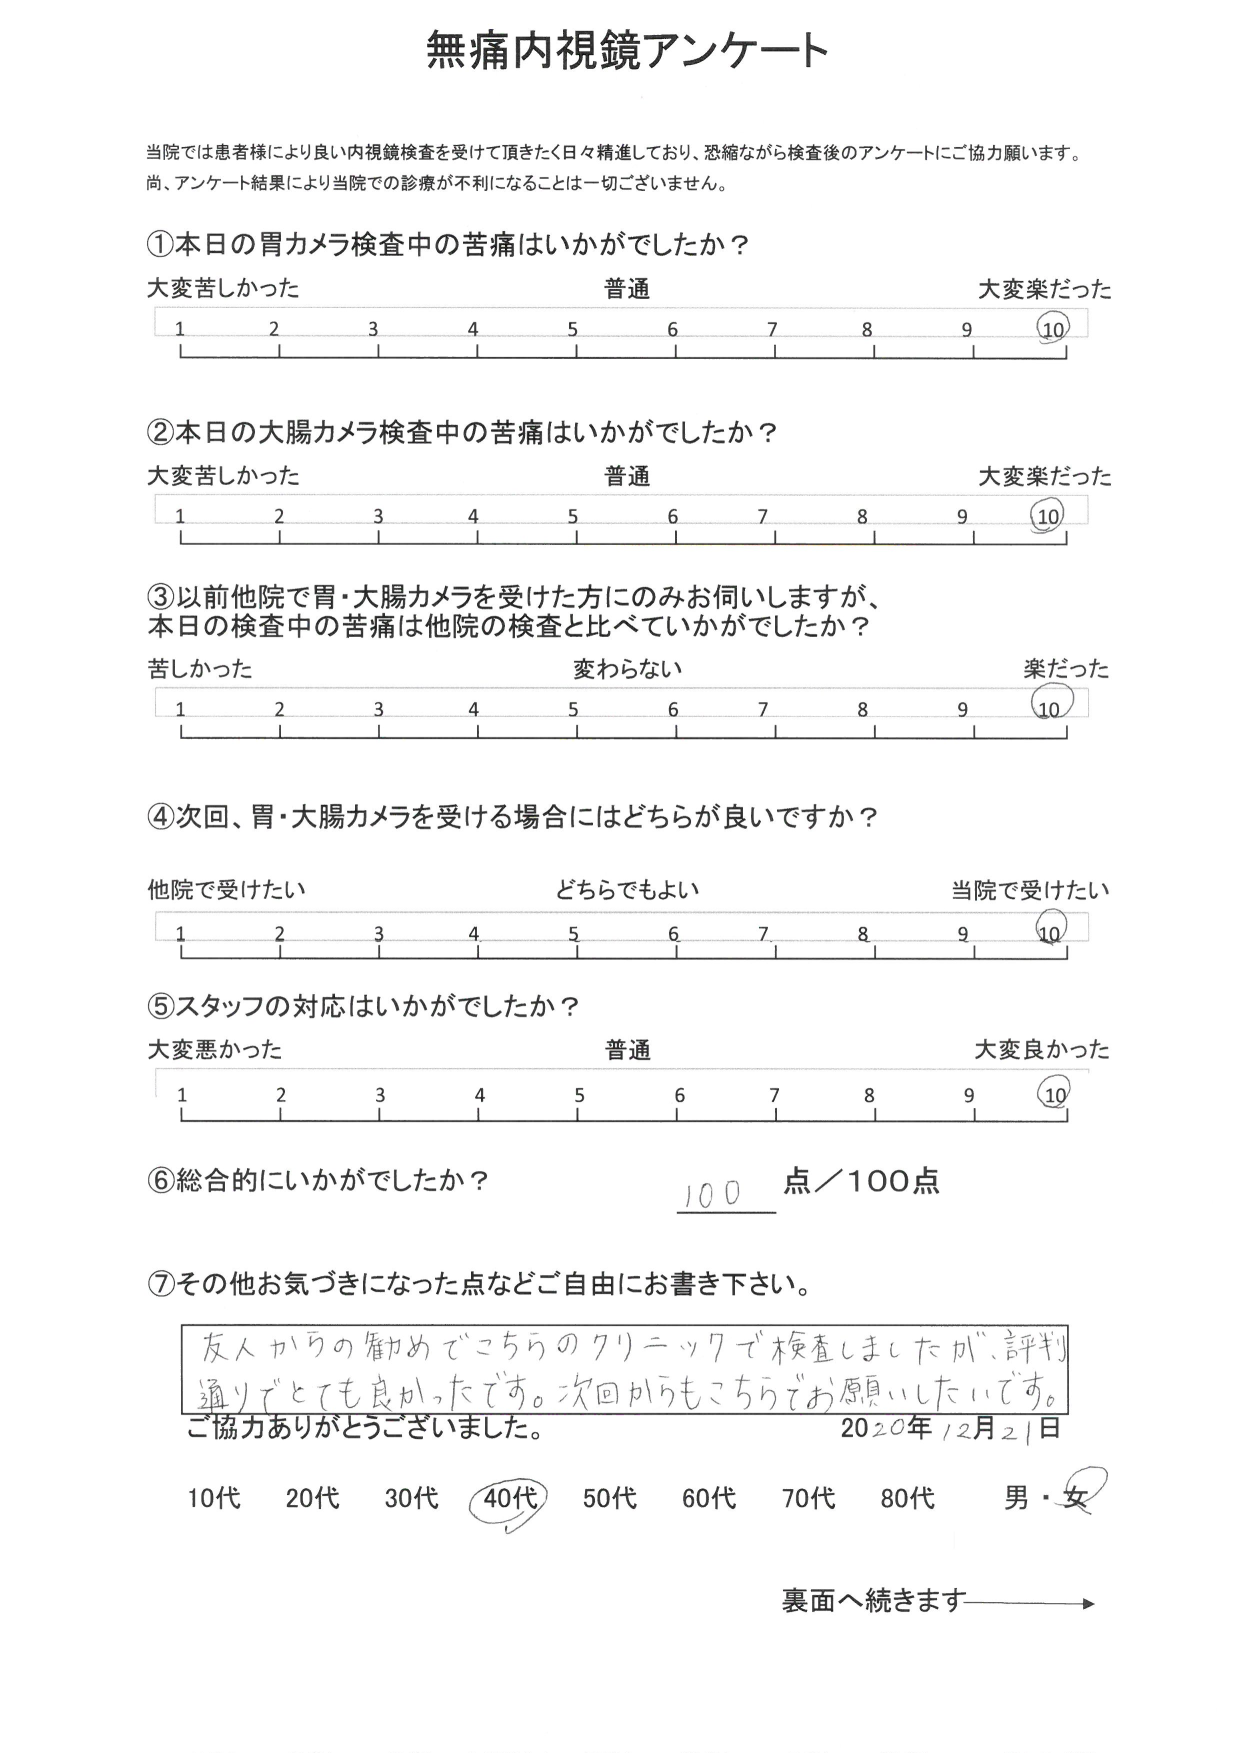 無痛内視鏡アンケート
当院では患者様により良い内視鏡検査を受けて頂きたく日々精進しており、恐縮ながら検査後のアンケートにご協力願います。
尚、アンケート結果により当院での診療が不利になることは一切ございません。
①本日の胃カメラ検査中の苦痛はいかがでしたか？
大変苦しかった 普通 大変楽だった
1 2 3 4 5 6 7 8 9 10
②本日の大腸カメラ検査中の苦痛はいかがでしたか？
大変苦しかった 普通 大変楽だった
1 2 3 4 5 6 7 8 9 10
③以前他院で胃・大腸カメラを受けた方にのみお伺いしますが、
本日の検査中の苦痛は他院の検査と比べていかがでしたか？
苦しかった 変わらない 楽だった
1 2 3 4 5 6 7 8 9 10
④次回、胃・大腸カメラを受ける場合にはどちらが良いですか？
他院で受けたい どちらでもよい 当院で受けたい
1 2 3 4 5 6 7 8 9 10
⑤スタッフの対応はいかがでしたか？
大変悪かった 普通 大変良かった
1 2 3 4 5 6 7 8 9 10
⑥総合的にいかがでしたか？ 100 点／100点
⑦その他お気づきになった点などご自由にお書き下さい。
友人からの勧めでこちらのクリニックで検査しましたが、評判
通りでとても良かったです。次回からもこちらでお願いしたいです。
ご協力ありがとうございました。 2020年12月21日
10代 20代 30代 40代 50代 60代 70代 80代 男・女
裏面へ続きます